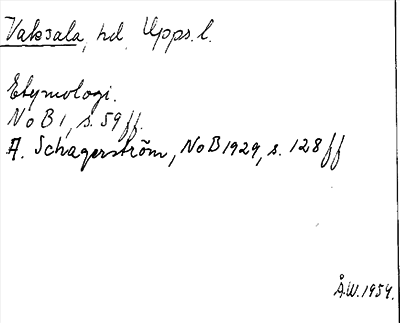 Vaksala, hd, Upps. l.
Etymologi.
NoB 1, s. 59 ff.
A. Schagerström, NoB 1929, s. 128 ff
Å.W. 1954.